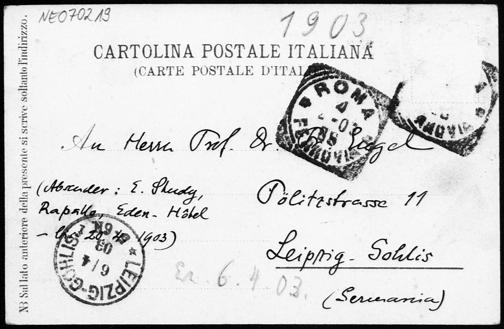 NE070219
1903
CARTOLINA POSTALE ITALIANA
(CARTE POSTALE D'ITAL
N3 Sul lato anteriore della presente si scrive soltanto l'indirizzo.
ROMA
4
FERROVIA
An Herrn Prof. Dr. Engel
(Absender: E. Study,
Pölitzstrasse 11
Rapallo, Eden-Hôtel
1903)
Leipzig-Gohlis
(Germania)
LEIPZIG-GOHLIS
6/4
03
Er. 6.4.03.